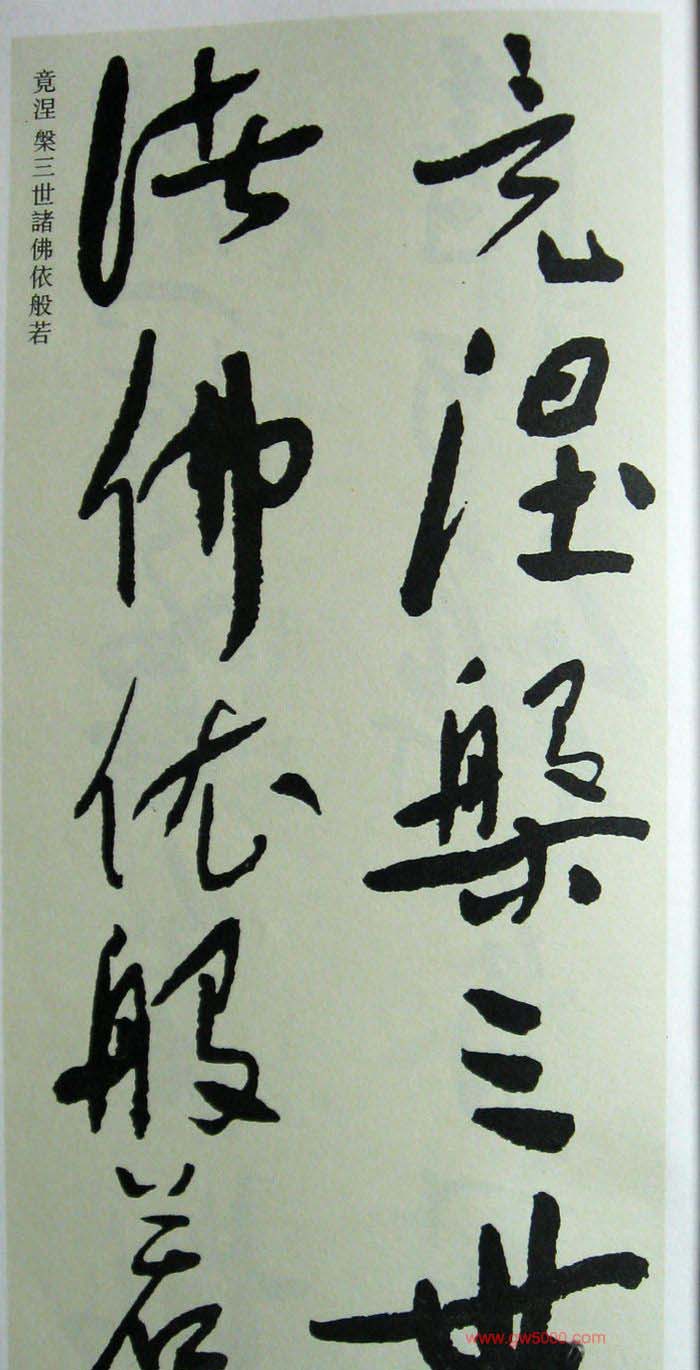 竟涅槃三世
諸佛依般若
竟涅槃三世諸佛依般若
www.gw5000.com